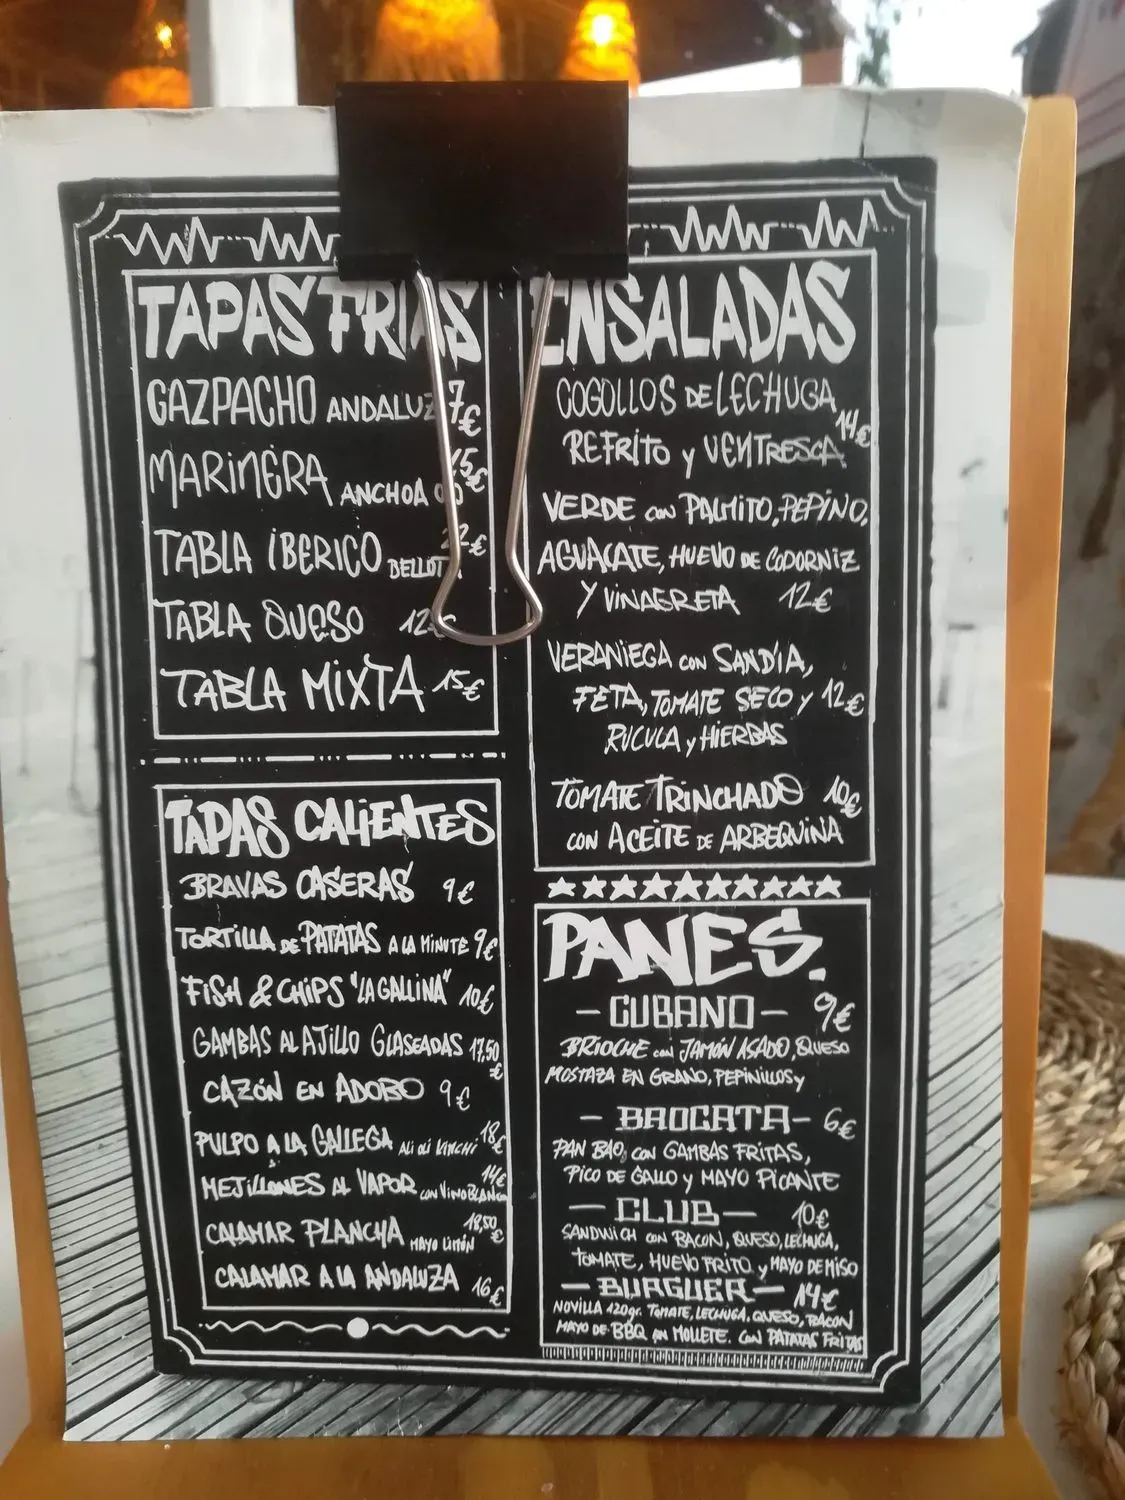 TAPAS FRIAS
GAZPACHO ANDALUZ 7€
MARINERA ANCHOA
TABLA IBERICO BELLOTA
TABLA QUESO 12€
TABLA MIXTA 15€
TAPAS CALIENTES
BRAVAS CASERAS 9€
TORTILLA DE PATATAS A LA MINUTE 9€
FISH & CHIPS "LA GALLINA" 10€
GAMBAS AL AJILLO GLASEADAS 17,50€
CAZÓN EN ADOBO 9€
PULPO A LA GALLEGA ALI OLI KIMCHI 18€
MEJILLONES AL VAPOR CON VINO BLANCO 14€
CALAMAR PLANCHA MAYO LIMÓN 18,50€
CALAMAR A LA ANDALUZA 16€
ENSALADAS
COGOLLOS DE LECHUGA
REFRITO Y VENTRESCA 14€
VERDE CON PALMITO, PEPINO,
AGUACATE, HUEVO DE CODORNIZ
Y VINAGRETA 12€
VERANIEGA CON SANDÍA,
FETA, TOMATE SECO Y 12€
RUCULA Y HIERBAS
TOMATE TRINCHADO 10€
CON ACEITE DE ARBEQUINA
PANES.
- CUBANO - 9€
BRIOCHE CON JAMÓN ASADO, QUESO
MOSTAZA EN GRANO, PEPINILLOS Y
- BAOCATA - 6€
PAN BAO, CON GAMBAS FRITAS,
PICO DE GALLO Y MAYO PICANTE
- CLUB - 10€
SANDWICH CON BACON, QUESO, LECHUGA,
TOMATE, HUEVO FRITO Y MAYO DE MISO
- BURGUER - 14€
NOVILLA 120gr. TOMATE, LECHUGA, QUESO, BACON
MAYO DE BBQ EN MOLLETE. CON PATATAS FRITAS